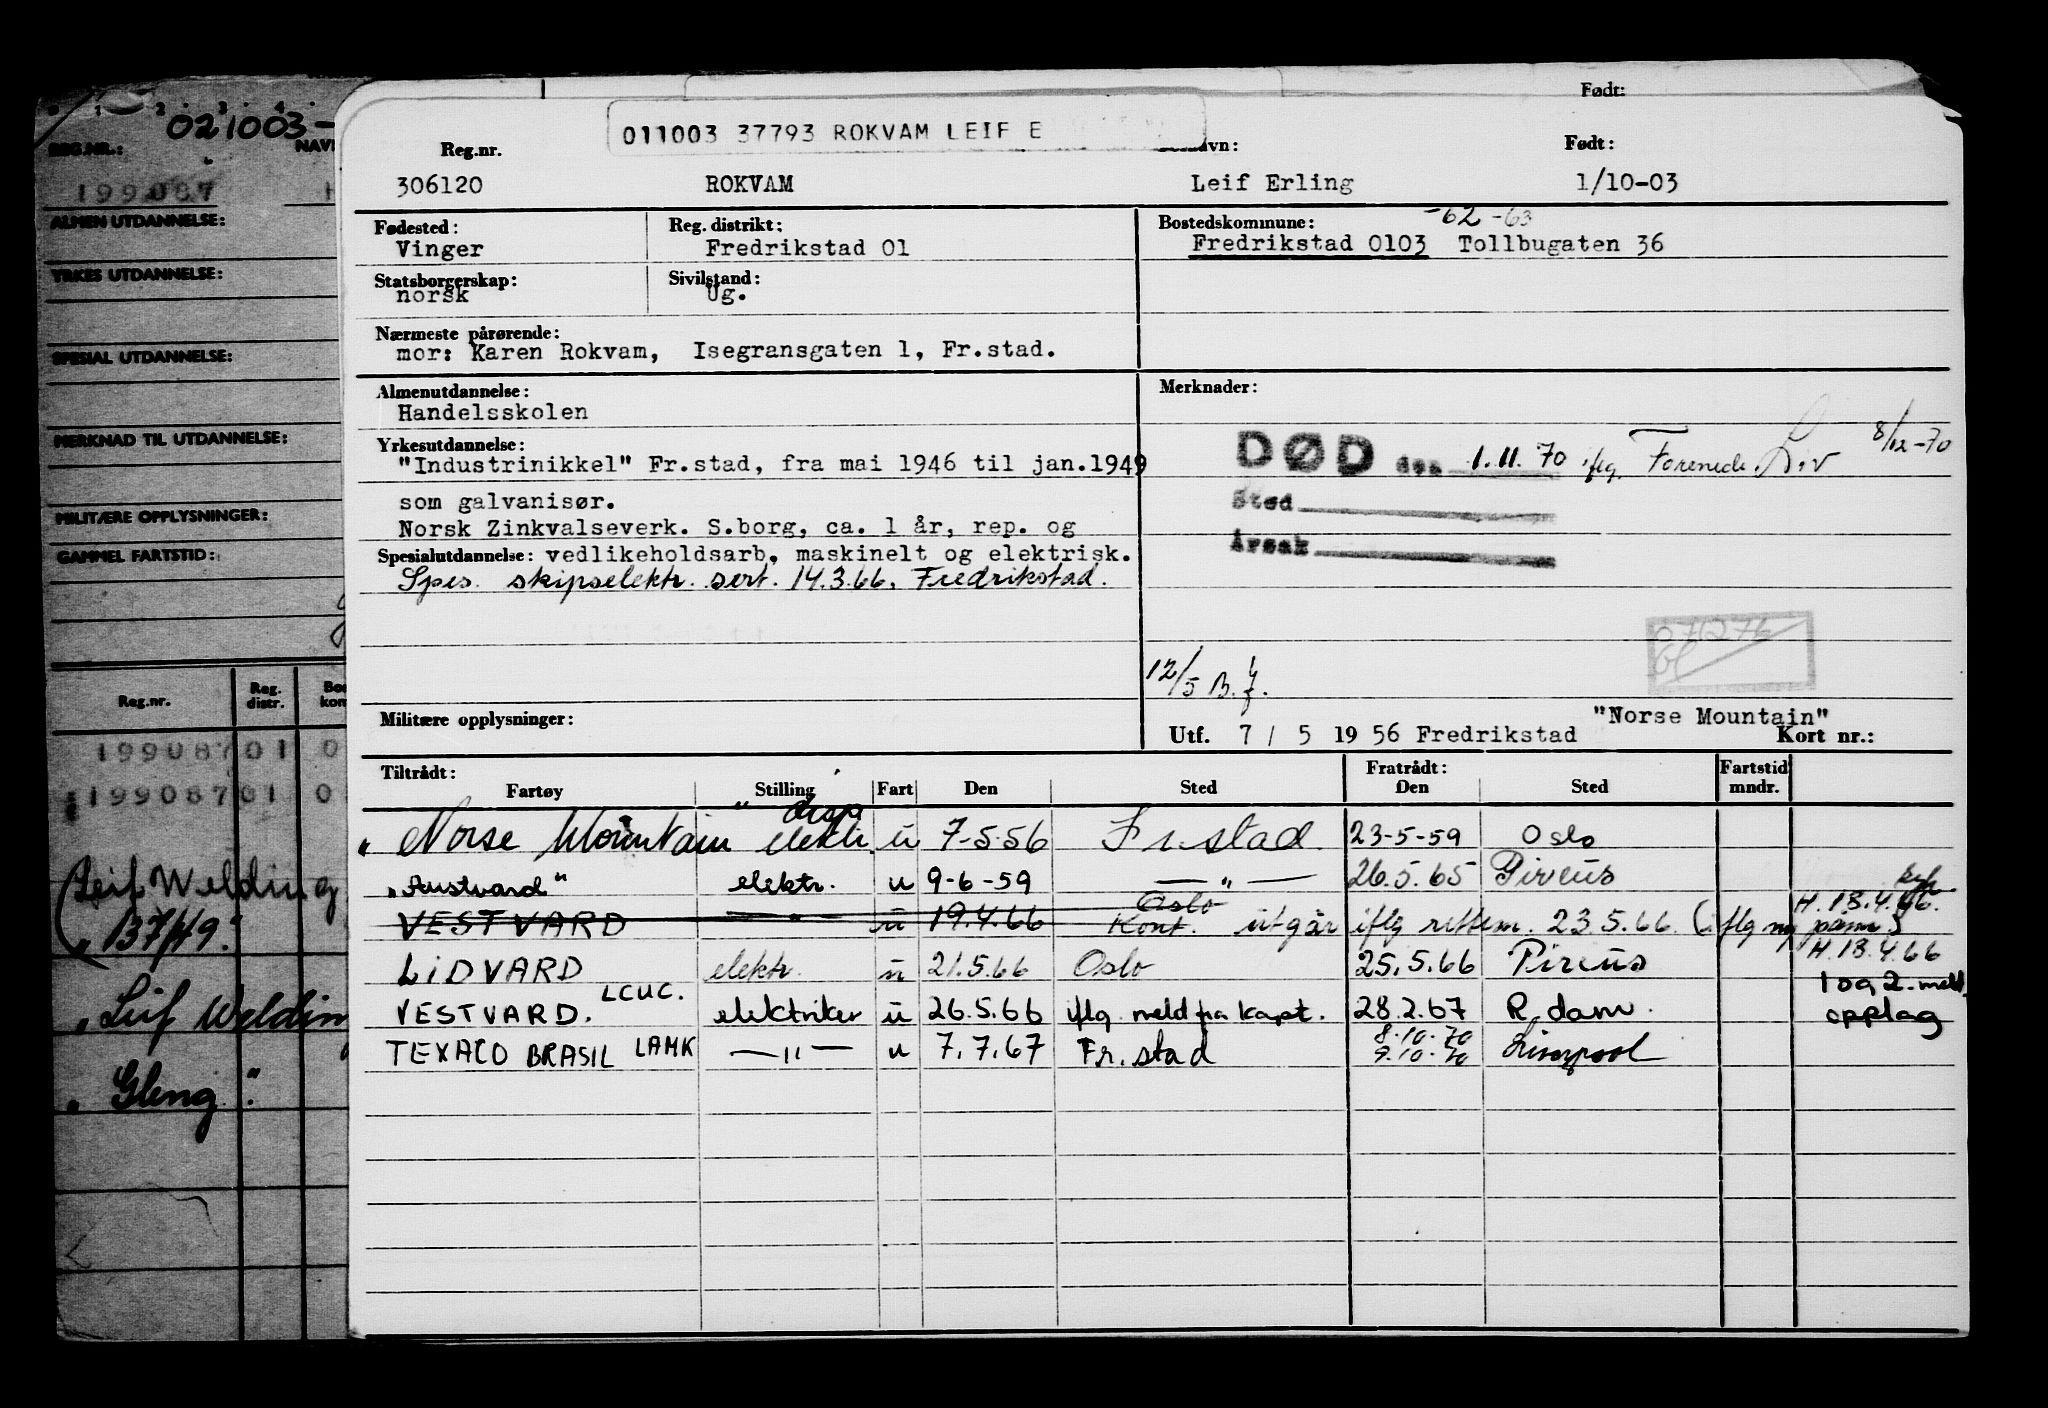 0 1 2 3 4
021003-
REG.NR.: NAV
199087 H
ALMEN UTDANNELSE:
YRKES UTDANNELSE:
SPESIAL UTDANNELSE:
MERKNAD TIL UTDANNELSE:
MILITÆRE OPPLYSNINGER:
GAMMEL FARTSTID:
Reg.nr. Reg. distr. Bos kom
199087 01 0
199087 01 0
Leif Welding
"137/49."
"Leif Welding
"Gleng".
Født:
011003 37793 ROKVAM LEIF E
Reg.nr. vn: Født:
306120 ROKVAM Leif Erling 1/10-03
Fødested: Reg. distrikt: Bostedskommune: -62 -63
Vinger Fredrikstad 01 Fredrikstad 0103 Tollbugaten 36
Statsborgerskap: Sivilstand:
norsk Ug.
Nærmeste pårørende:
mor: Karen Rokvam, Isegransgaten 1, Fr.stad.
Almenutdannelse: Merknader:
Handelsskolen
Yrkesutdannelse:
"Industrinikkel" Fr.stad, fra mai 1946 til jan.1949
som galvanisør.
Norsk Zinkvalseverk. S.borg, ca. 1 år, rep. og
Spesialutdannelse: vedlikeholdsarb, maskinelt og elektrisk.
Spes. skipselektr. sert. 14.3.66, Fredrikstad.
DØD den 1.11.70 iflg. Forenede Liv 8/12-70
Sted
Årsak
071276
12/5 B.f.
Militære opplysninger:
"Norse Mountain"
Utf. 7 / 5 19 56 Fredrikstad Kort nr.:
Tiltrådt: Fratrådt: Fartstid
Fartøy Stilling Fart Den Sted Den Sted mndr.
"Norse Mountain" disp elektr. u 7-5-56 Fr.stad 23-5-59 Oslo
"Austvard" elektr. u 9-6-59 — " — 26.5.65 Pireus
VESTVARD — " — u 19.4.66 Oslo Kont. utgår iflg rettem. 23.5.66 (iflg ny påm.) H. 18.4.66.
LIDVARD elektr. u 21.5.66 Oslo 25.5.66 Pireus H. 13.4.66
VESTVARD. LCUC. elektriker u 26.5.66 iflg. meld fra kapt. 28.2.67 R.dam. 1 og 2. meld. opplag
TEXACO BRASIL LAMK — " — u 7.7.67 Fr.stad 8.10.70 9.10.70 Liverpool